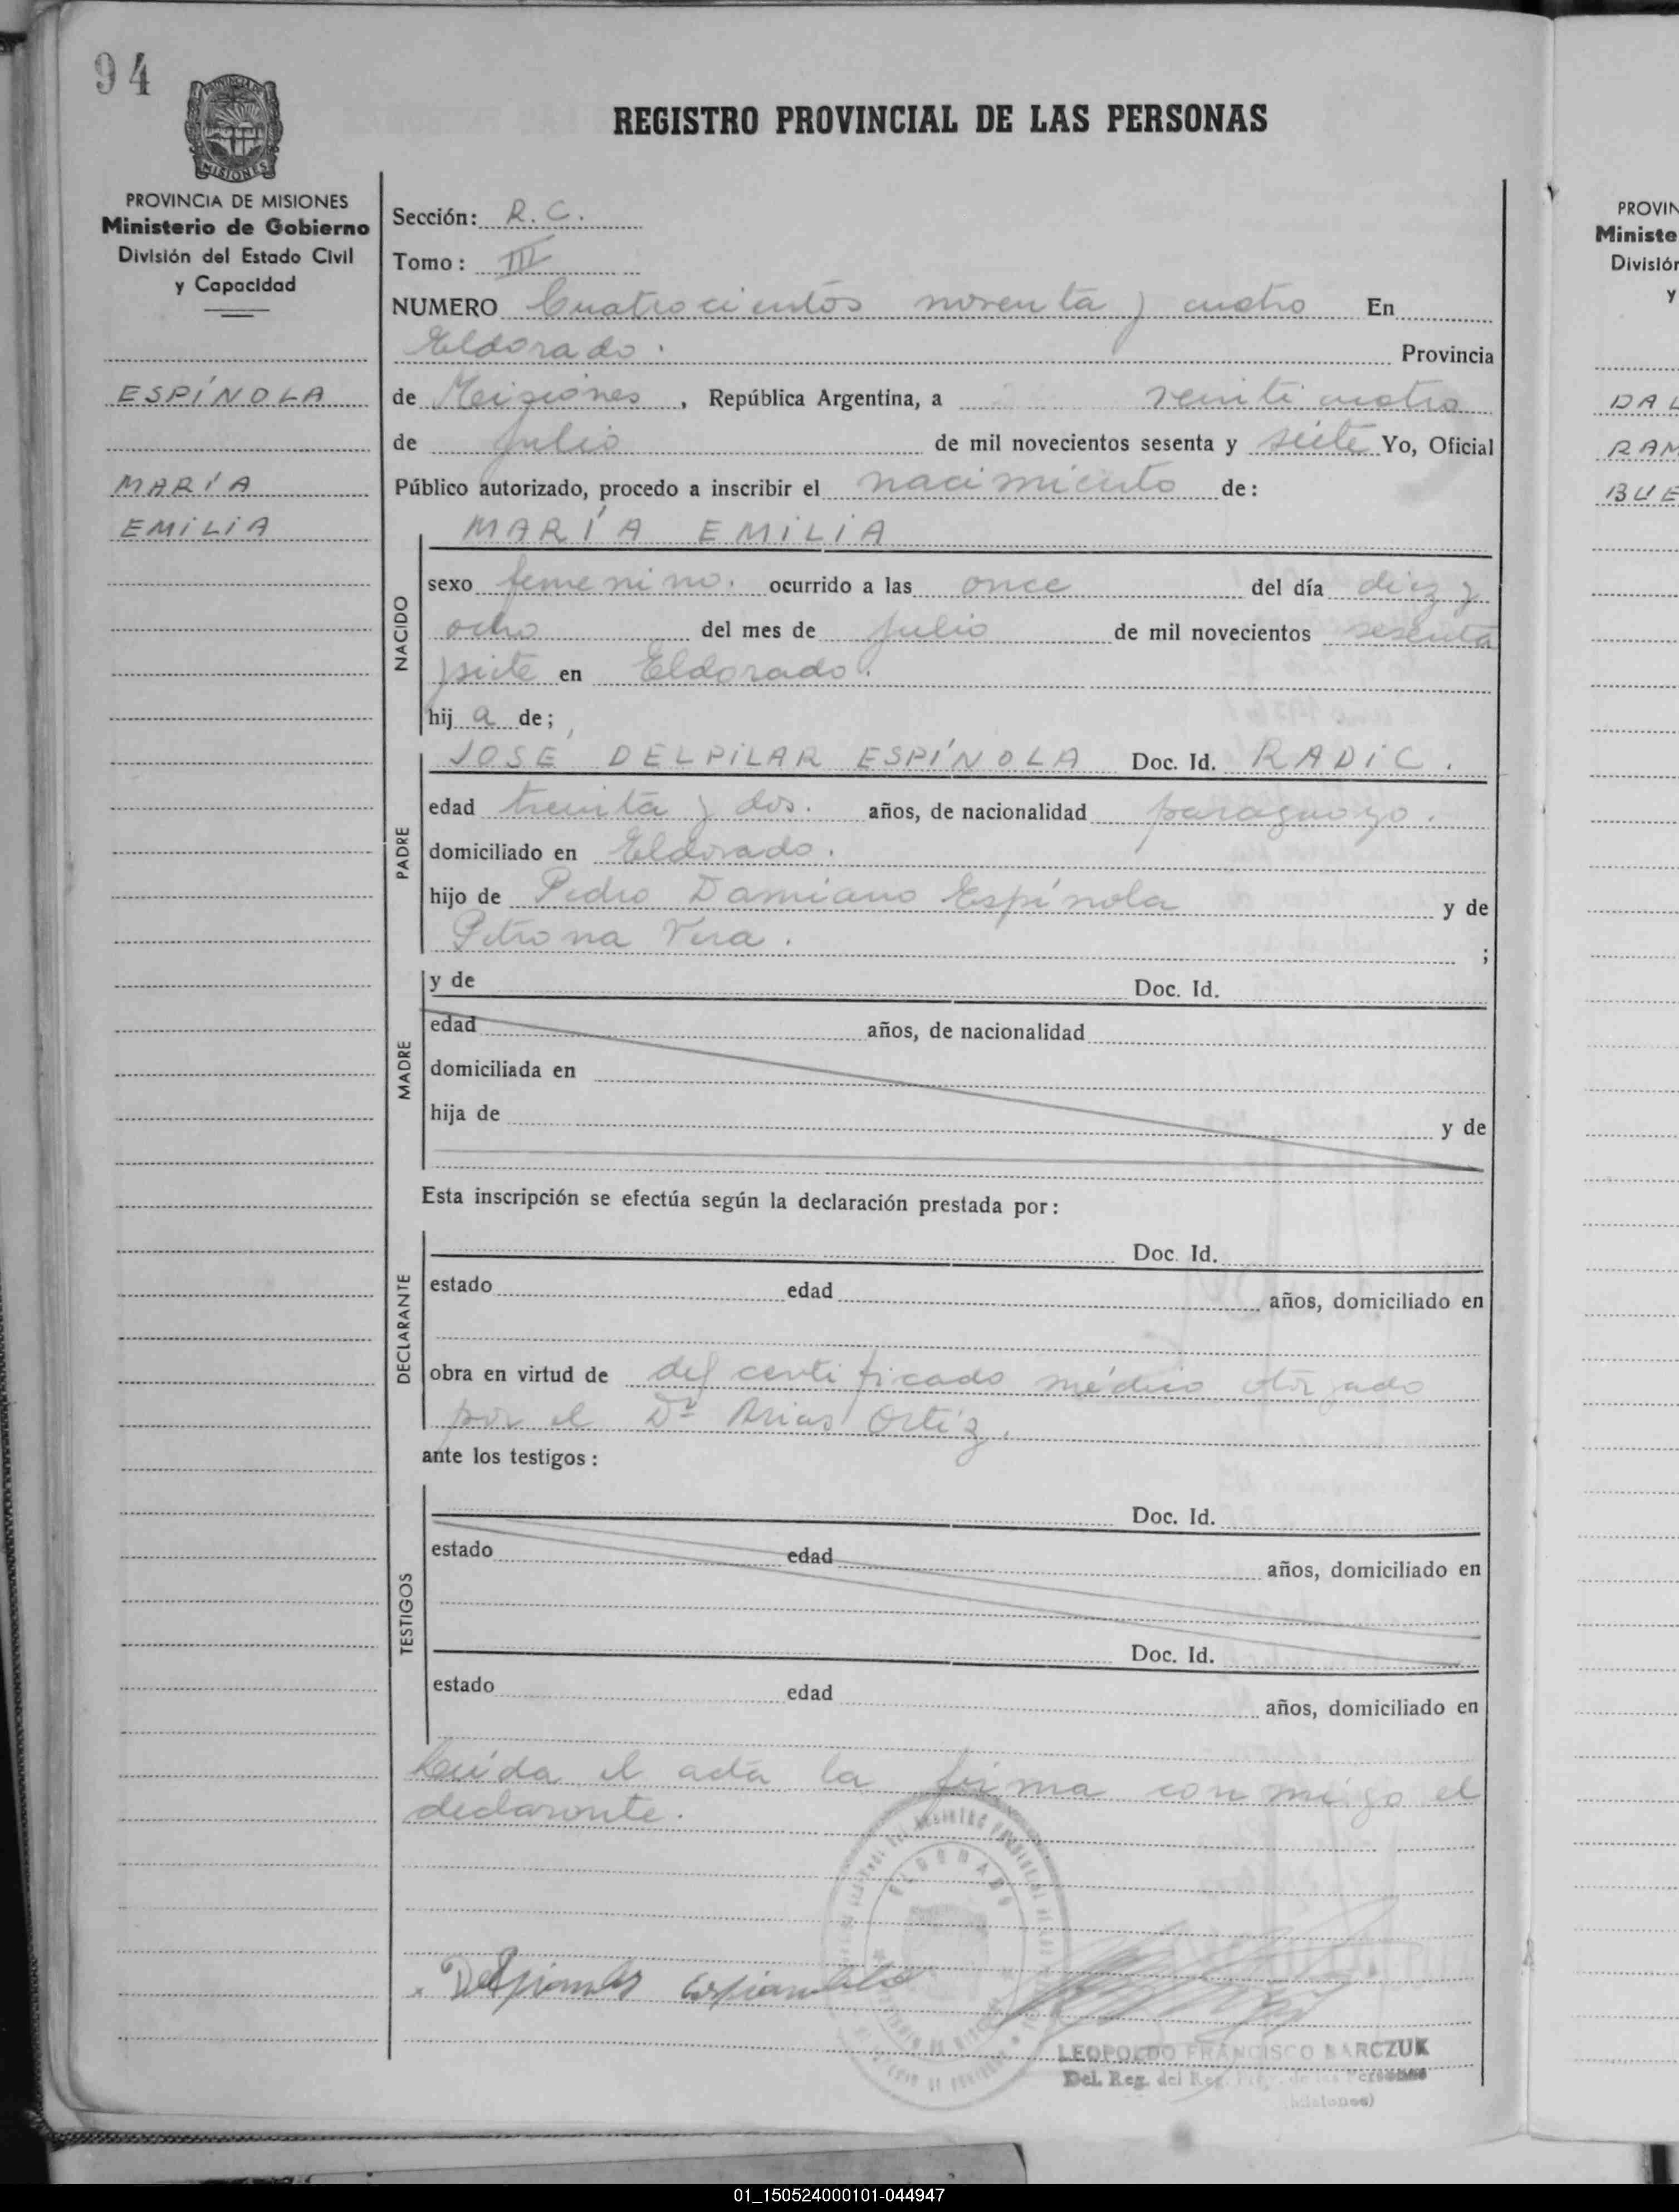 94
REGISTRO PROVINCIAL DE LAS PERSONAS
PROVINCIA DE MISIONES
Ministerio de Gobierno
División del Estado Civil
y Capacidad
ESPÍNOLA
MARÍA
EMILIA
Sección: R. C.
Tomo: III
NUMERO Cuatrocientos noventa y cuatro En
Eldorado. Provincia
de Misiones, República Argentina, a veinticuatro
de julio de mil novecientos sesenta y siete Yo, Oficial
Público autorizado, procedo a inscribir el nacimiento de:
NACIDO
MARÍA EMILIA
sexo femenino. ocurrido a las once del día diez y
ocho del mes de julio de mil novecientos sesenta
y siete en Eldorado.
hij a de;
PADRE
JOSE DELPILAR ESPÍNOLA Doc. Id. RADIC.
edad treinta y dos. años, de nacionalidad paraguayo.
domiciliado en Eldorado.
hijo de Pedro Damiano Espínola y de
Petrona Vera. ;
MADRE
y de Doc. Id.
edad años, de nacionalidad
domiciliada en
hija de y de
Esta inscripción se efectúa según la declaración prestada por:
DECLARANTE
Doc. Id.
estado edad años, domiciliado en
obra en virtud de del certificado médico otorgado
por el Dr Arias Ortíz.
ante los testigos:
TESTIGOS
Doc. Id.
estado edad años, domiciliado en
Doc. Id.
estado edad años, domiciliado en
Leída el acta la firma conmigo el
declarante.
ELDORADO
LEOPOLDO FRANCISCO BARCZUK
Del. Reg. del Reg. Prov. de las Personas
(Misiones)
PROVIN
Ministe
División
y
DAL
RAM
BUE
01_150524000101-044947